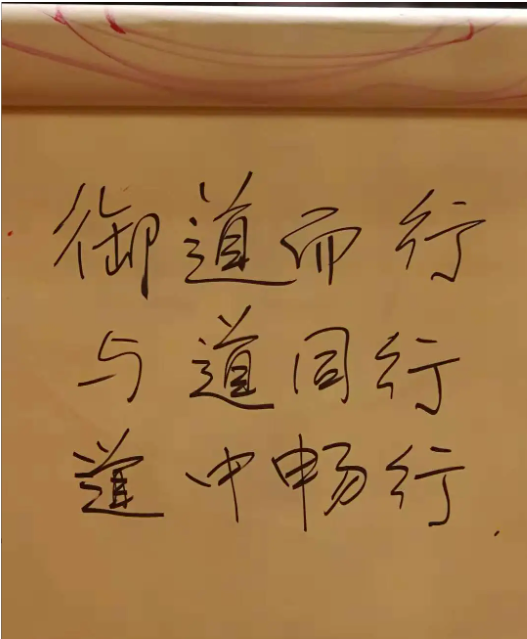 御道而行
与道同行
道中畅行